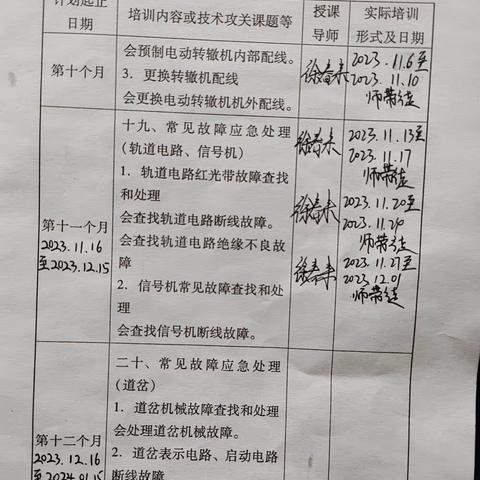 计划起止
日期
培训内容或技术攻关课题等
授课
导师
实际培训
形式及日期
第十个月
会预制电动转辙机内部配线。
3．更换转辙机配线
会更换电动转辙机机外配线。
徐春来
2023.11.6至
2023.11.10
师带徒
第十一个月
2023.11.16
至2023.12.15
十九、常见故障应急处理
（轨道电路、信号机）
1．轨道电路红光带故障查找
和处理
会查找轨道电路断线故障。
会查找轨道电路绝缘不良故
障
2．信号机常见故障查找和处
理
会查找信号机断线故障。
徐春来
2023.11.13至
2023.11.17
师带徒
徐春来
2023.11.20至
2023.11.24
师带徒
徐春来
2023.11.27至
2023.12.01
师带徒
第十二个月
2023.12.16
至2024.01.15
二十、常见故障应急处理
（道岔）
1．道岔机械故障查找和处理
会处理道岔机械故障。
2．道岔表示电路、启动电路
断线故障